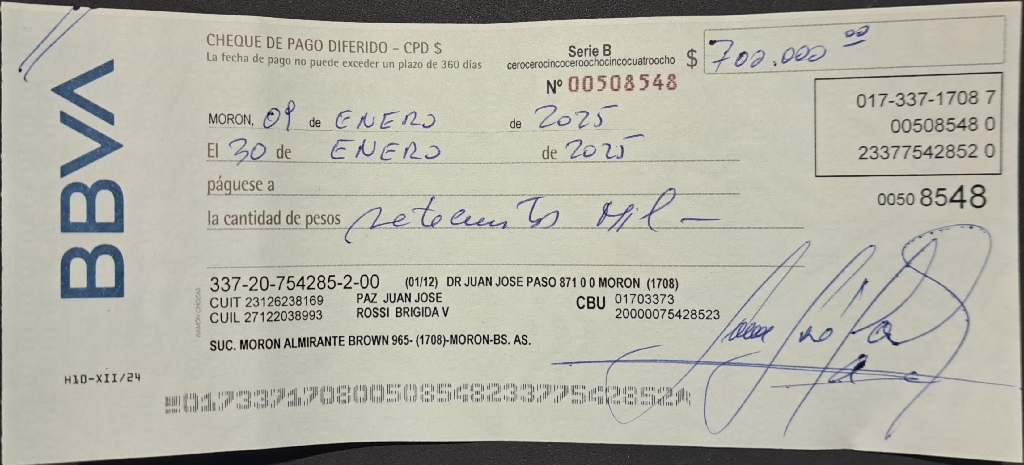 BBVA
CHEQUE DE PAGO DIFERIDO – CPD $
La fecha de pago no puede exceder un plazo de 360 días
Serie B
cerocerocincoceroochocincocuatroocho
Nº 00508548
$ 700.000 00
017-337-1708 7
00508548 0
23377542852 0
0050 8548
MORON, 09 de ENERO de 2025
El 30 de ENERO de 2025
páguese a
la cantidad de pesos setecientos Mil –
337-20-754285-2-00 (01/12) DR JUAN JOSE PASO 871 0 0 MORON (1708)
CUIT 23126238169 PAZ JUAN JOSE
CUIL 27122038993 ROSSI BRIGIDA V
CBU 01703373
20000075428523
SUC. MORON ALMIRANTE BROWN 965- (1708)-MORON-BS. AS.
H10-XII/24
01733717080050854823377542852